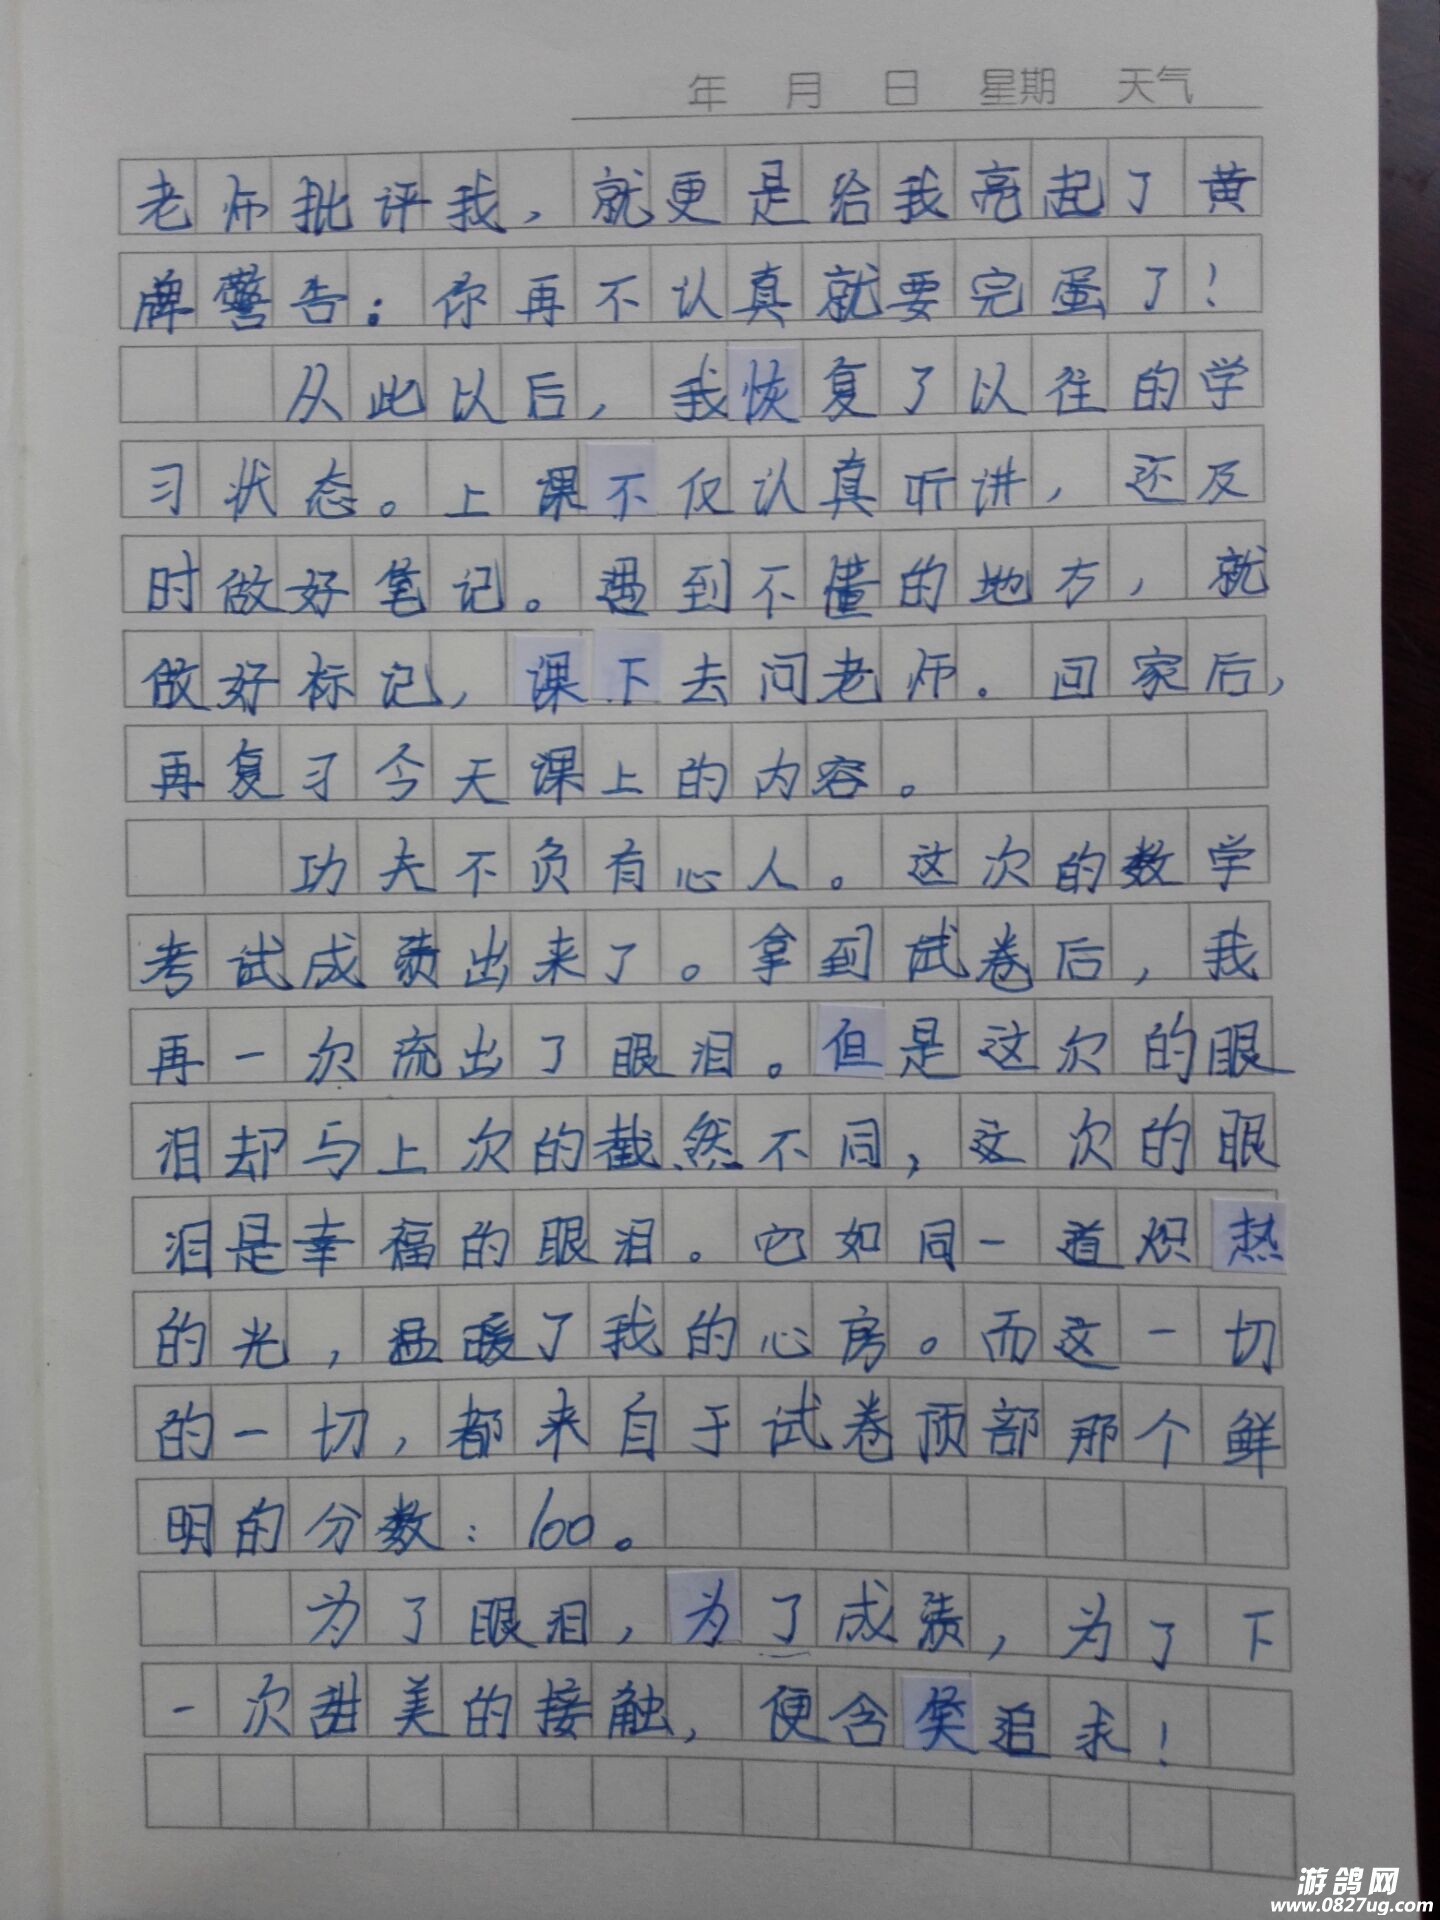 年 月 日 星期 天气
老师批评我，就更是给我亮起了黄
牌警告：你再不认真就要完蛋了！
从此以后，我恢复了以往的学
习状态。上课不仅认真听讲，还及
时做好笔记。遇到不懂的地方，就
做好标记，课下去问老师。回家后，
再复习今天课上的内容。
功夫不负有心人。这次的数学
考试成绩出来了。拿到试卷后，我
再一次流出了眼泪。但是这次的眼
泪却与上次的截然不同，这次的眼
泪是幸福的眼泪。它如同一道炽热
的光，温暖了我的心房。而这一切
的一切，都来自于试卷顶部那个鲜
明的分数：100。
为了眼泪，为了成绩，为了下
一次甜美的接触，便含笑追求！
游鸽网
www.0827ug.com